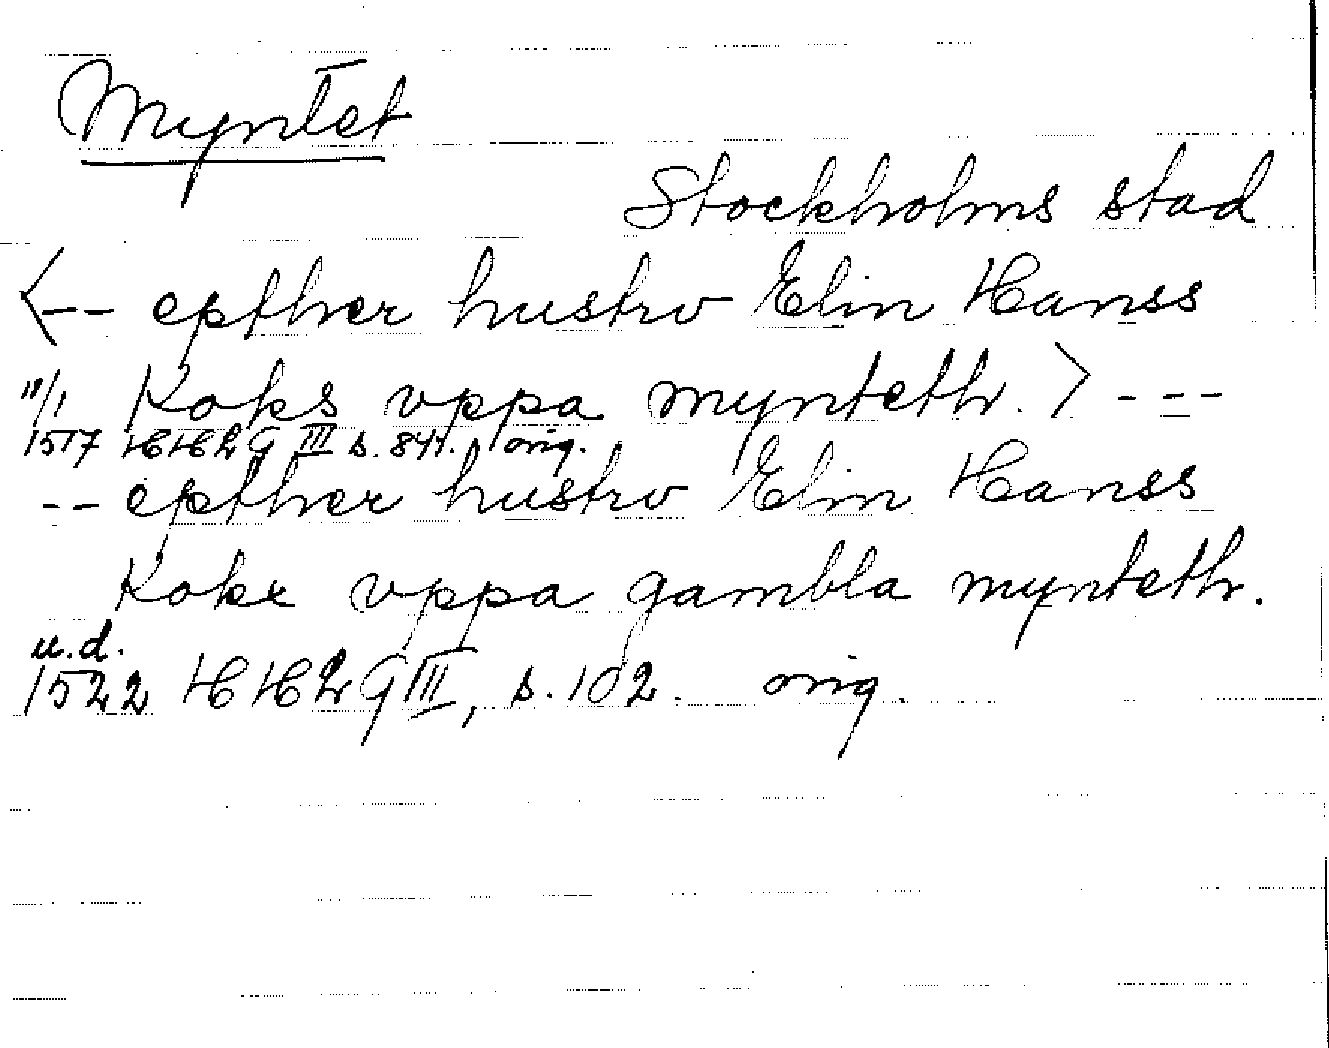 Myntet
Stockholms stad
<-- epther hustrv Elin Hanss
11/1 Koks vppa mynteth. > ---
1517 HHLG III s. 841. orig.
-- epther hustrv Elin Hanss
Kokx vppa gambla mynteth.
u.d.
1522 HHLG III, s. 102. orig.